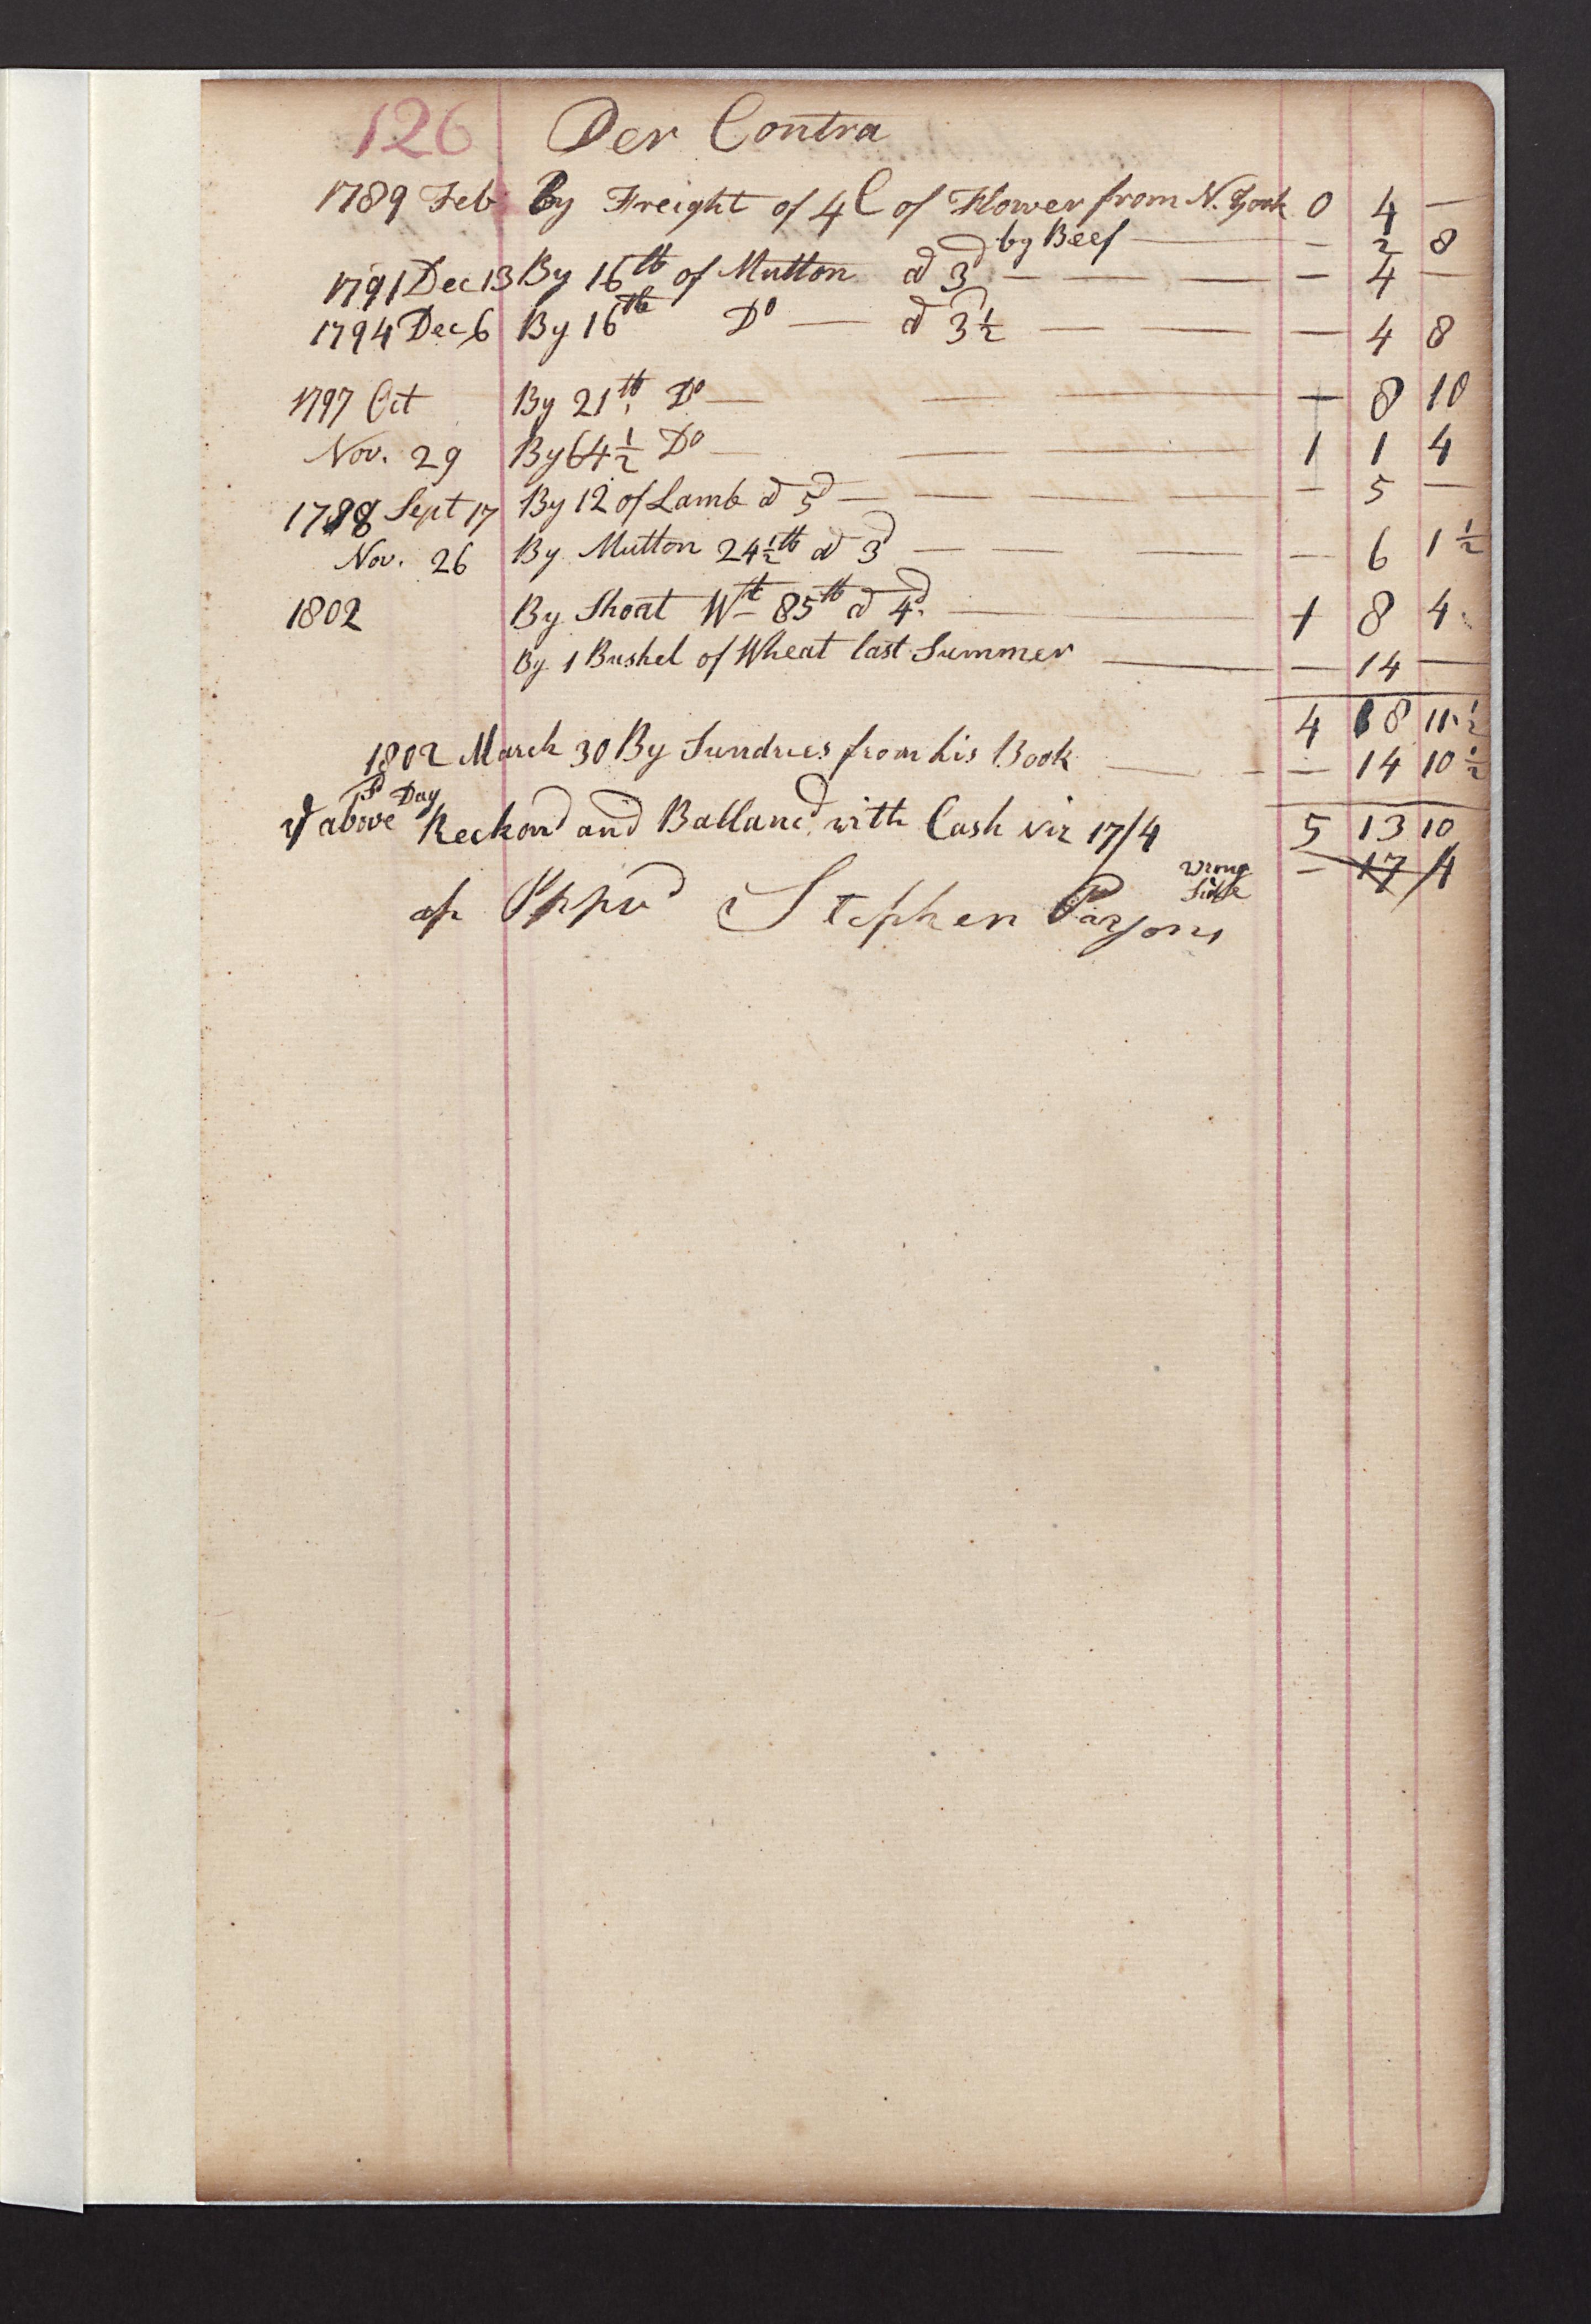 126 Per Contra
1789 Feb By Freight of 4 C of Flower from N. York 0 4 —
by Beef — — 2 8
1791 Dec 13 By 16 lb of Mutton a 3d — — — — 4 —
1794 Dec 6 By 16 lb Do — a 3 1/2 d — — — 4 8
1797 Oct By 21 lb Do — — — — 8 10
Nov. 29 By 64 1/2 Do — — — 1 1 4
1788 Sept 17 By 12 of Lamb a 5d — — — — 5 —
Nov. 26 By Mutton 24 1/2 lb a 3d — — — — 6 1 1/2
1802 By Shoat Wt 85 lb a 4d. — 1 8 4
By 1 Bushel of Wheat last Summer — — 14 —
4 18 11 1/2
1802 March 30 By Sundries from his Book — — 14 10 1/2
5 13 10
Day
above Reckond and Balland with Cash viz 17/4
Wrong Side — 17 4
Stephen Parsons